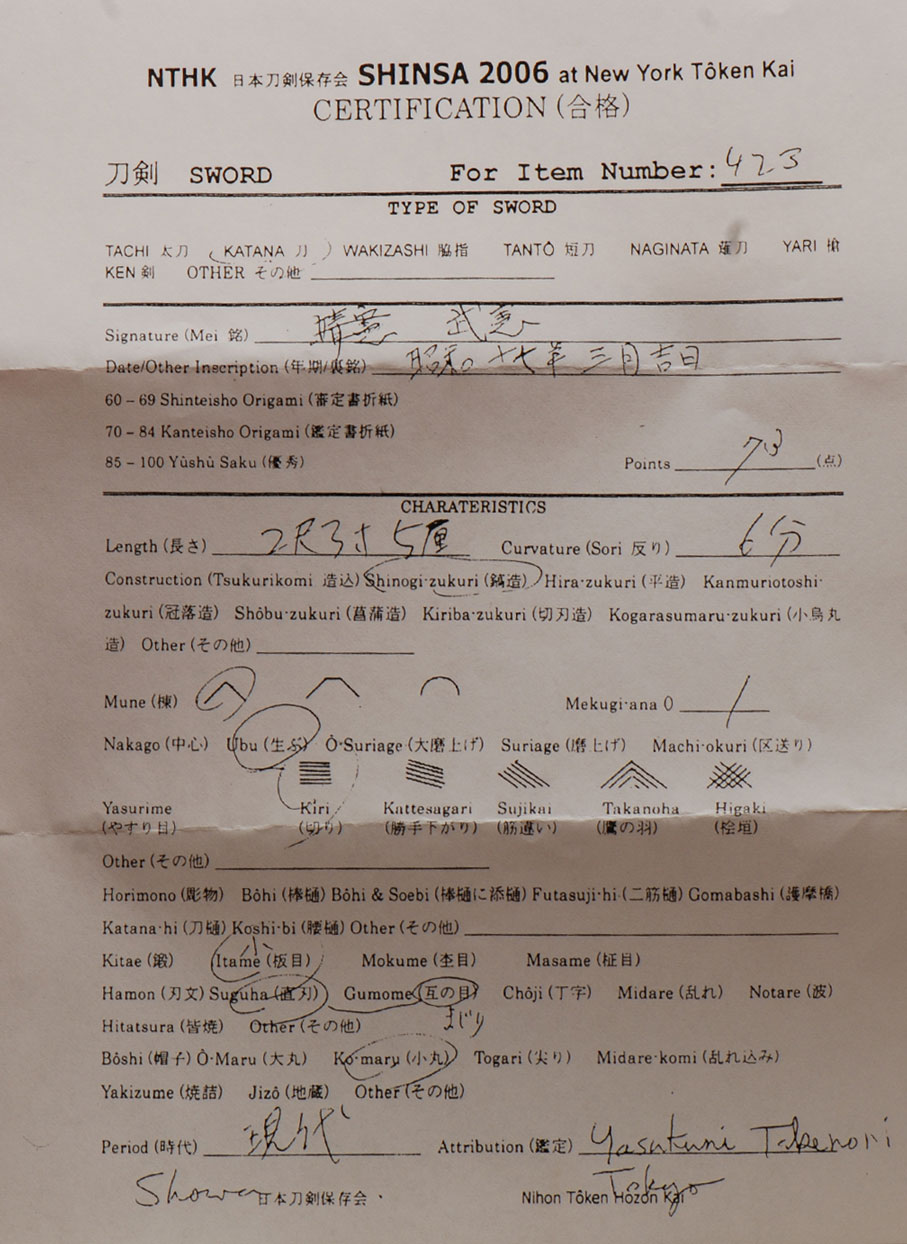 NTHK 日本刀剣保存会 SHINSA 2006 at New York Tôken Kai
CERTIFICATION (合格)
刀剣 SWORD For Item Number: 423
TYPE OF SWORD
TACHI 太刀 (KATANA 刀) WAKIZASHI 脇指 TANTÔ 短刀 NAGINATA 薙刀 YARI 槍
KEN 剣 OTHER その他
Signature (Mei 銘) 靖憲 武憲
Date/Other Inscription (年期/裏銘) 昭和 十七年 三月吉日
60 – 69 Shinteisho Origami (審定書折紙)
70 – 84 Kanteisho Origami (鑑定書折紙)
85 – 100 Yûshû Saku (優秀) Points 73 (点)
CHARATERISTICS
Length (長さ) 2尺3寸5厘 Curvature (Sori 反り) 6分
Construction (Tsukurikomi 造込) Shinogi-zukuri (鎬造) Hira-zukuri (平造) Kanmuriotoshi-
zukuri (冠落造) Shôbu-zukuri (菖蒲造) Kiriba-zukuri (切刃造) Kogarasumaru-zukuri (小烏丸
造) Other (その他)
Mune (棟) Mekugi-ana 0 1
Nakago (中心) Ubu (生ぶ) Ô-Suriage (大磨上げ) Suriage (磨上げ) Machi-okuri (区送り)
Yasurime Kiri Kattesagari Sujikai Takanoha Higaki
(やすり目) (切り) (勝手下がり) (筋違い) (鷹の羽) (桧垣)
Other (その他)
Horimono (彫物) Bôhi (棒樋) Bôhi & Soebi (棒樋に添樋) Futasuji-hi (二筋樋) Gomabashi (護摩橋)
Katana-hi (刀樋) Koshi-bi (腰樋) Other (その他)
小
Kitae (鍛) Itame (板目) Mokume (杢目) Masame (柾目)
Hamon (刃文) Suguha (直刃) Gumome (互の目) Chôji (丁字) Midare (乱れ) Notare (波)
Hitatsura (皆焼) Other (その他) まじり
Bôshi (帽子) Ô-Maru (大丸) Ko-maru (小丸) Togari (尖り) Midare-komi (乱れ込み)
Yakizume (焼詰) Jizô (地蔵) Other (その他)
Period (時代) 現代 Attribution (鑑定) Yasukuni Takenori
Showa 日本刀剣保存会 Nihon Tôken Hozon Kai Tokyo